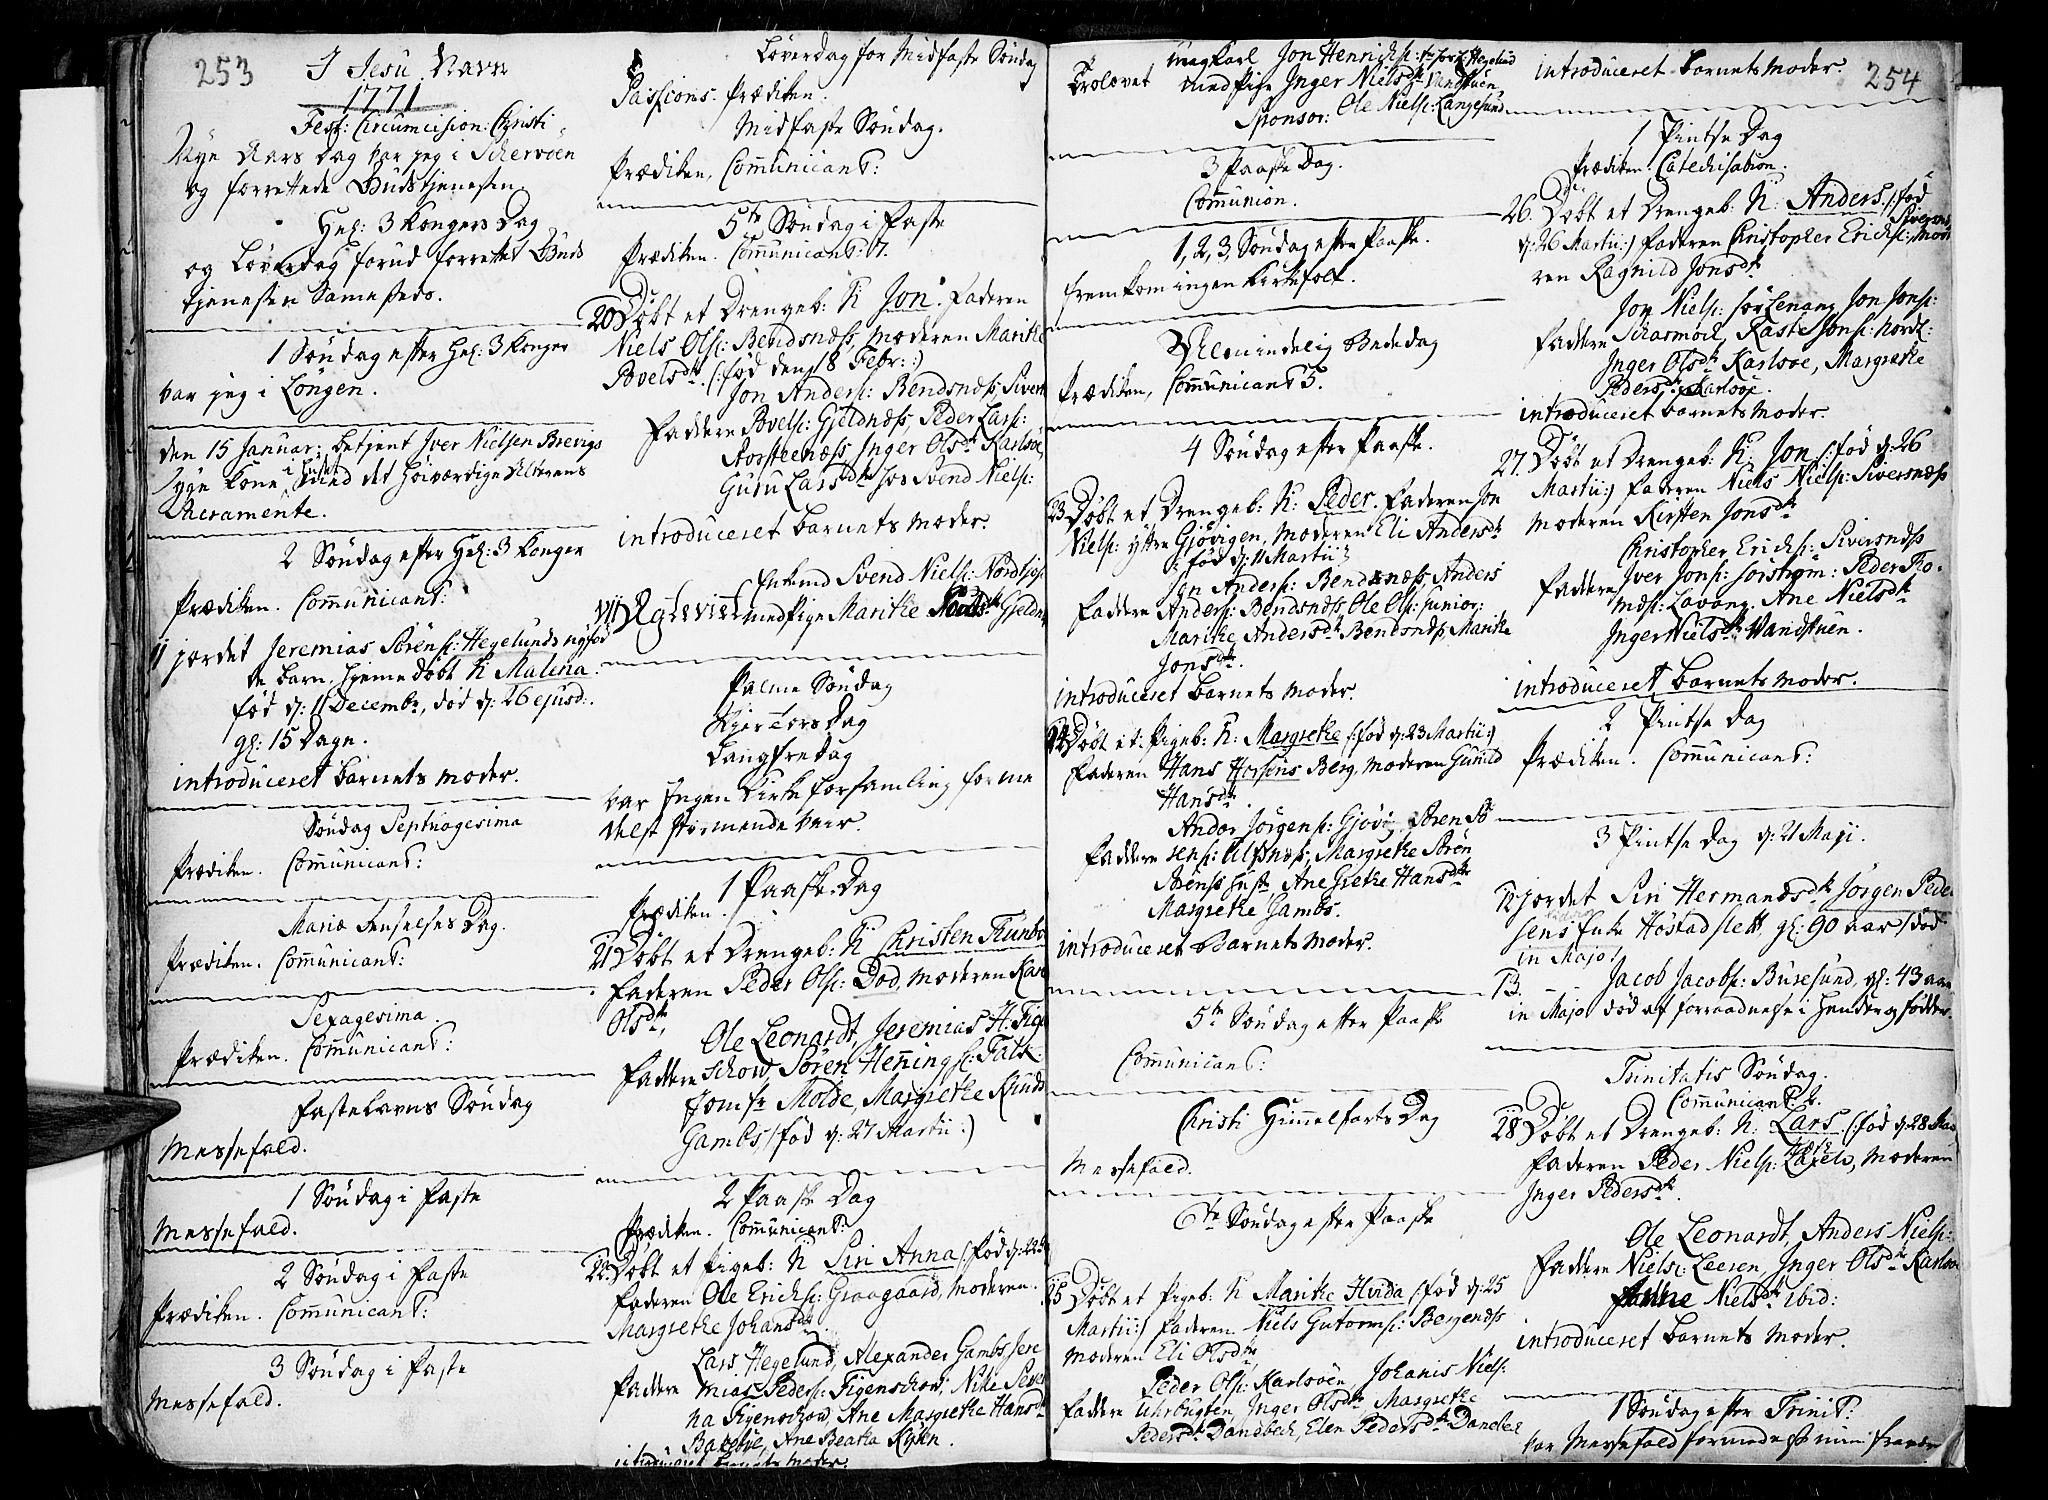 253
I Jesu Navn
1771
Fest: Circumcision: Christi
Nye Aars Dag var jeg i Schervöen
og forrettede Gudstjenesten
Hel: 3 Kongers Dag
og Löverdag forud forrettet Guds
tjenesten Sammesteds.
1 Söndag efter Hel: 3 Konger
var jeg i Löngen.
den 15 Januar: betjent Iver Nielsen Brevigs
syge Kone i Huset med det Höiværdige Alterens
Sacramente.
2 Söndag efter Hel: 3 Konger
Prædiken. Communicant:
11 jordet Jeremias Sörens: Hegelunds nyfød
te barn, hjemedöbt N Malena.
fød d: 11 Decembr, død d: 26 ejusd:
gl: 15 Dage.
introduceret barnets moder.
Söndag Septuagesima
Prædiken. Communicant:
Mariæ Renselses Dag.
Prædiken. Communicant:
Sexagesima.
Prædiken. Communicant:
Fastelavns Söndag
Messefald.
1 Söndag i Faste
Messefald.
2 Söndag i Faste
Prædiken. Communicant:
3 Söndag i Faste
Messefald.
Löverdag for Midfaste Söndag
Passions-Prædiken.
Midfaste Söndag.
Prædiken, Communicant:
5te Söndag i Faste
Prædiken. Communicant: 7.
20 Döbt et Drengeb: N Jon. Faderen
Niels Ols: Bendsnæss, moderen Marithe
Povelsdtr (: fød den 18 Febr: :)
Jon Anders: Bendsnæss, Sivert
Faddere Povels: Gjeldnæss, Peder Lars:
Korsteenæss, Inger Olsdtr Karlsöe,
Guru Larsdtr hos Svend Niels:
introduceret barnets moder.
Enkemd Svend Niels: Nordfios:
VII Egteviet med Pige Marithe Gjeldn
Palme Söndag
Skjertorsdag
Langfredag
var Ingen Kirke forsamling forme
delst stormende veir.
1 Paaske-Dag
Prædiken.
21 Döbt et Drengeb: N Christen Thunbo
Faderen Peder Ols: Dod, moderen Kar
Olsdtr,
Ole Leonardt, Jeremias H. Fige
Faddere schow, Sören Hennings: Falk
Jomfr Molde, Margrethe Knuds
Gambs (fød d: 27 Martii:)
2 Paaske Dag
Prædiken. Communicant:
22 Döbt et Pigeb: N Siri Anna (: fød d: 22
Faderen Ole Erichs: Graagaard, moderen
Margrethe Johansdtr.
Lars Hegelund, Alexander Gambs, Jere
Faddere mias Peders: Figenschow, Nike Seve
na Figenschow, Ane Margrethe Hansdtr
Bakebye, Ane Beatha Kyhn.
introduceret barnets moder.
254
Ungkarl Jon Henrichs: hos Hegelund
Trolovet med Pige Inger Nielsdtr Vandstuen,
Sponsor: Ole Niels: Langesund
3 Paaske Dag.
Communion.
1, 2, 3, Söndag efter Paaske.
fremkom ingen Kirkefolk.
Almindelig Bededag
Prædiken, Communicant 5.
4 Söndag efter Paaske.
23 Döbt et Drengeb: N: Peder. Faderen Jon
Niels: yttre Gjøvigen, moderen Eli Andersdtr
(: fød d: 11 Martii:)
Jon Anders: Bendsnæss, Anders
Faddere Anders: Bendsnæss, Ole Ols: junior:
Marithe Andersdtr Bendsnæss, Marithe
Jonsdtr.
introduceret barnets moder.
24 Döbt et: Pigeb: N: Margrethe (: fød d: 23 Martii:)
Faderen Hans Horsens Berg, moderen Gunild
Hansdtr.
Andor Jörgens: Gjøvig, Sören Sö
Faddere rens: Ulfsnæss, Margrethe Sören
Sörenss hustr, Ane Grethe Hansdtr
Margrethe Gambs.
introduceret Barnets moder.
5te Söndag efter Paaske
Communicant:
Christi Himmelfarts Dag
Messefald.
6te Söndag efter Paaske
25 Döbt et Pigeb: N Marithe Hvida (: fød d: 25
Martii:) Faderen Niels Gutorms: Bergendss
moderen Eli Olsdtr,
Peder Ols: Karlsöen, Johanis Niels:
Faddere Uhrbugten, Inger Olsdtr Margrethe
Pedersdtr Dandbech, Elen Pedersdtr Danebee
introduceret barnets moder.
1 Pintse Dag
Prædiken. Catechisation.
26. Döbt et Drengeb: N: Anders. (: fød
d: 26 Martii:) Faderen Christopher Erichs: Siversnæs, Mode
ren Ragnild Jonsdtr
Jon Niels: Sörlenang, Jon Jons:
Faddere Skarmoel, Raste Jons: Nordl:
Inger Olsdtr Karlsöe, Margrethe
Pedersdtr Karlsöe.
introduceret barnets moder.
27. Döbt et Drengeb: N: Jon (: fød d: 26
Martii:) Faderen Niels Niels: Siversnæss
moderen Kirsten Jonsdtr
Christopher Erichs: Siversnæss
Faddere Iver Jons: Sörstrøm: Peder Tho-
mds: Lavang. Ane Nielsdtr
Inger Nielsdtr Vandstuen.
introduceret barnets moder.
2 Pintse Dag
Prædiken. Communicant:
3 Pintse Dag d: 21 Maji.
12 jordet Siri Hermandsdtr Jörgen Peder
sens Enke Höstadslett, gl: 90 aar (død
in Majo)
13. - - Jacob Jacobs: Busesund, gl: 43 aar
in Majo død af forraadnelse i hender og fødder
Trinitatis Söndag.
Communicant: 2.
28 Döbt et Drengeb: N: Lars. (: fød d: 28 Mar
Faderen Peder Niels: moderen
Inger Pedersdtr.
Ole Leonardt, Anders Niels:
Faddere Niels: Leesen, Inger Olsdtr Karlsöe
Nielsdtr ibid:
introduceret barnets moder.
1 Söndag efter Trinit:
var Messefald formedelst min fra